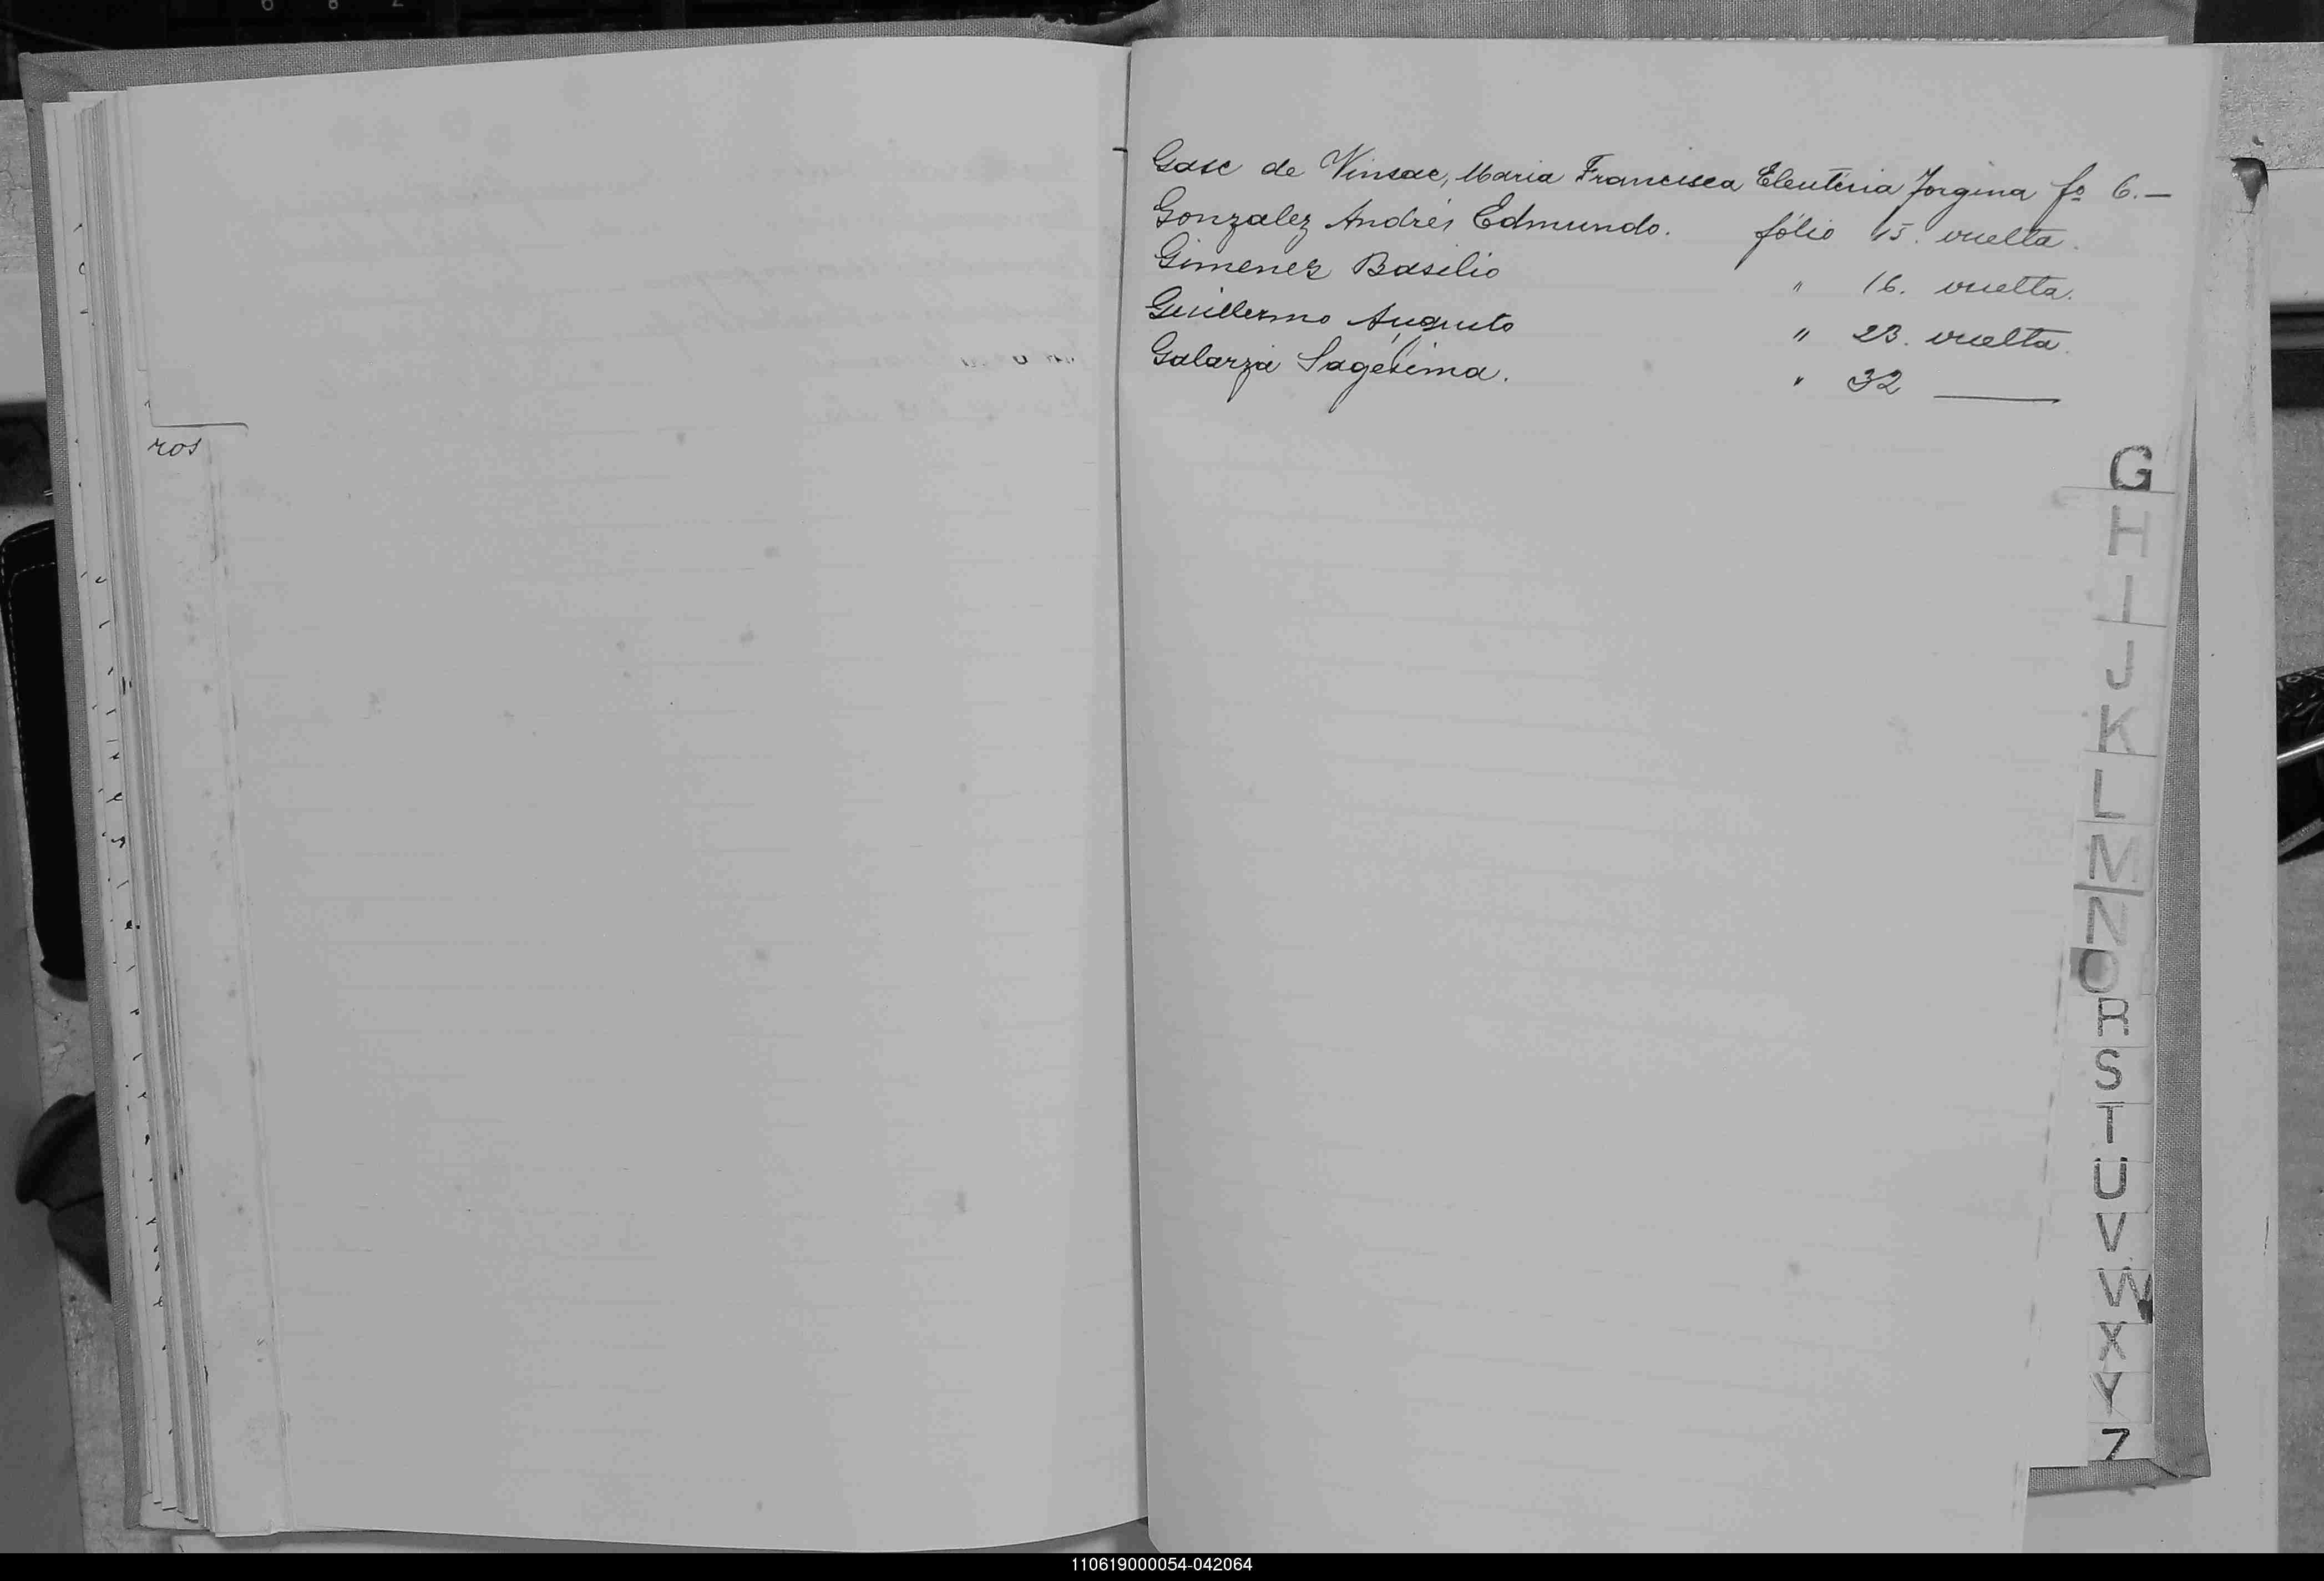 ros
Gasc de Vinsac, Maria Francisca Eleuteria Jorgina fº 6.—
Gonzalez Andrés Edmundo. fólio 15. vuelta.
Gimenez Basilio " 16. vuelta.
Guillermo Augusto " 23. vuelta.
Galarza Sagésima. " 32 ———
G
H
I
J
K
L
M
N
O
R
S
T
U
V
W
X
Y
Z
110619000054-042064